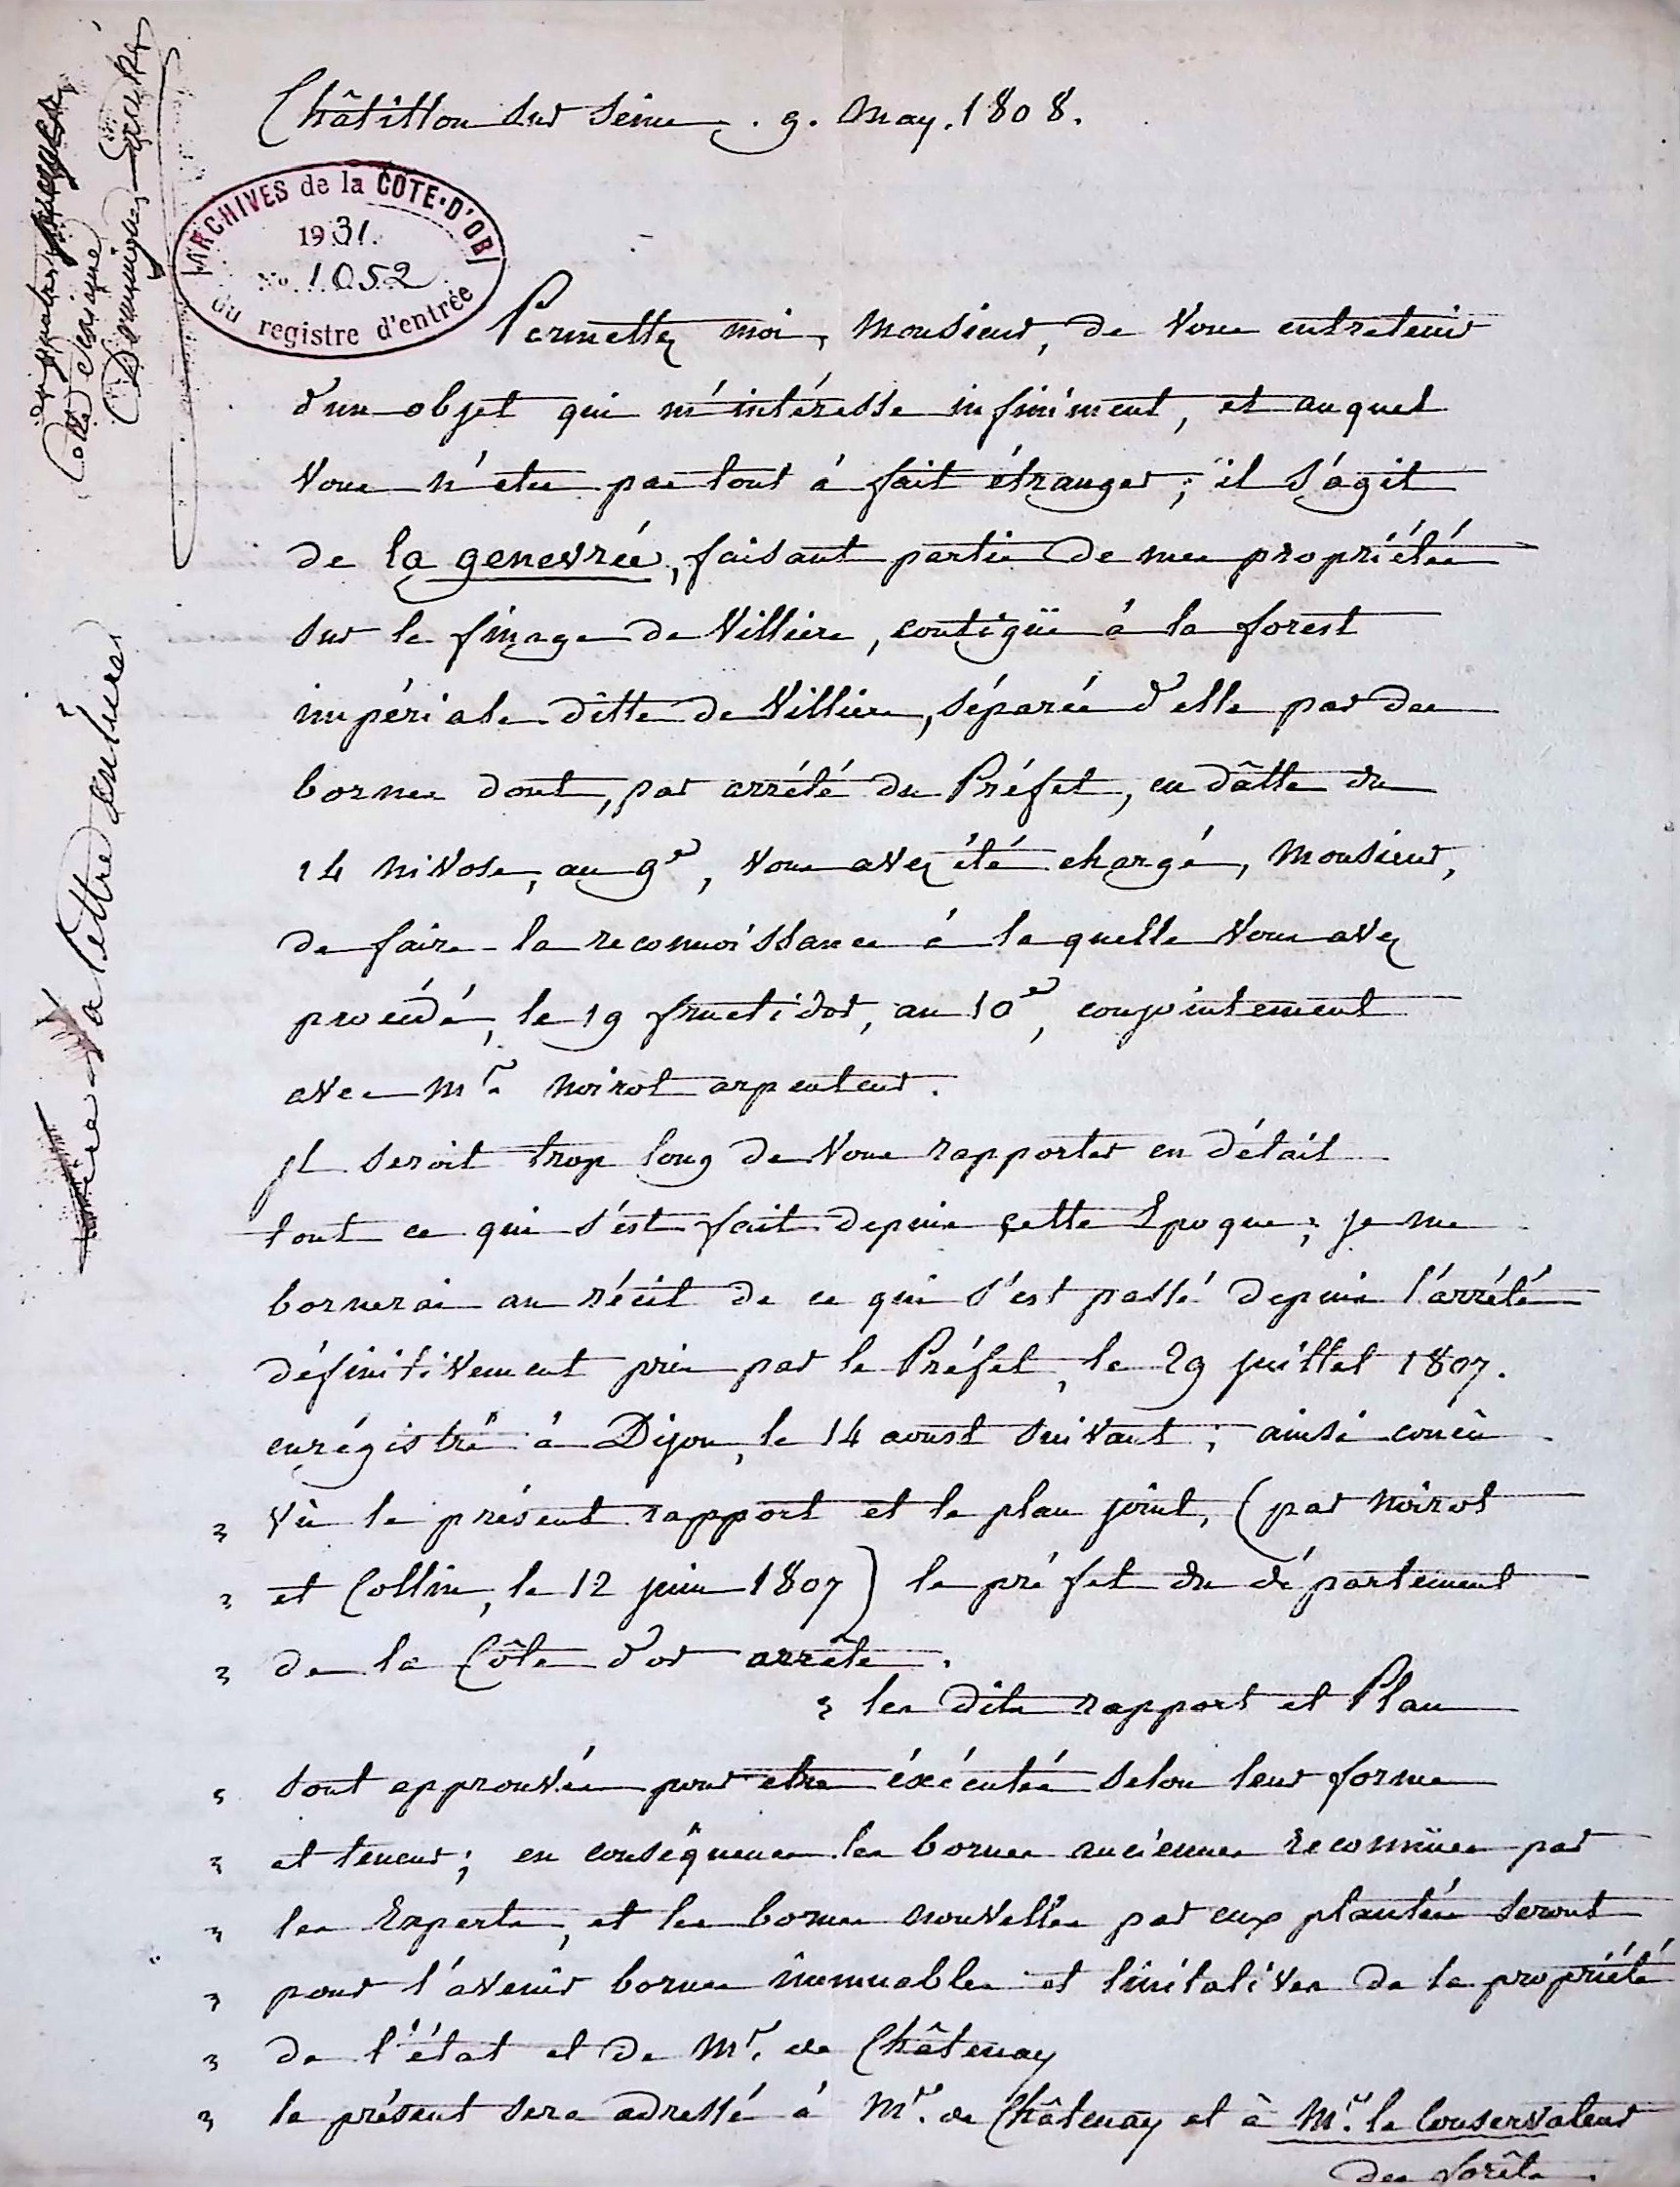 Châtillon sur seine . 9. may. 1808.
ARCHIVES de la CÔTE-D'OR
1931.
No. 1052
du registre d'entrée
Permettez moi, Monsieur, de vous entretenir
d'un objet qui m'intéresse infiniment, et auquel
vous n'etes pas tout à fait étranger; il s'agit
de la genevrée, faisant partie de mes propriétés
sur le finage de Villiers, contigüe à la forest
impériale ditte de Villiers, séparée d'elle par des
bornes dont, par arrêté du Préfet, en dâtte du
14 nivose, an 9e, vous avez été chargé, Monsieur,
de faire la reconnoissance à laquelle vous avez
procédé, le 19 fructidor, an 10e, conjointement
avec Mr. Noirot arpenteur.
jl seroit trop long de vous rapporter en détail
tout ce qui s'est fait depuis cette Epoque; je me
bornerai au récit de ce qui s'est passé depuis l'arrêté
définitivement pris par le Préfet, le 29 juillet 1807.
enrégistré à Dijon, le 14 aoust suivant; ainsi concû
" Vû le présent rapport et le plan joint, (par Noirot
" et Collin, le 12 juin 1807) le préfet du département
" de la Côte d'or arrête.
" les dits rapport et Plan
" sont approuvés pour etre éxécutés selon leur forme
" et teneur; en conséquence les bornes anciennes reconnües par
" les Experts, et les bornes nouvelles par eux plantées seront
" pour l'avenir bornes immuables et limitatives de la propriété
" de l'état et de Mr. de Châtenay
" le présent sera adressé à Mr. de Châtenay et à Mr. le Conservateur
des forêts.
a lettre